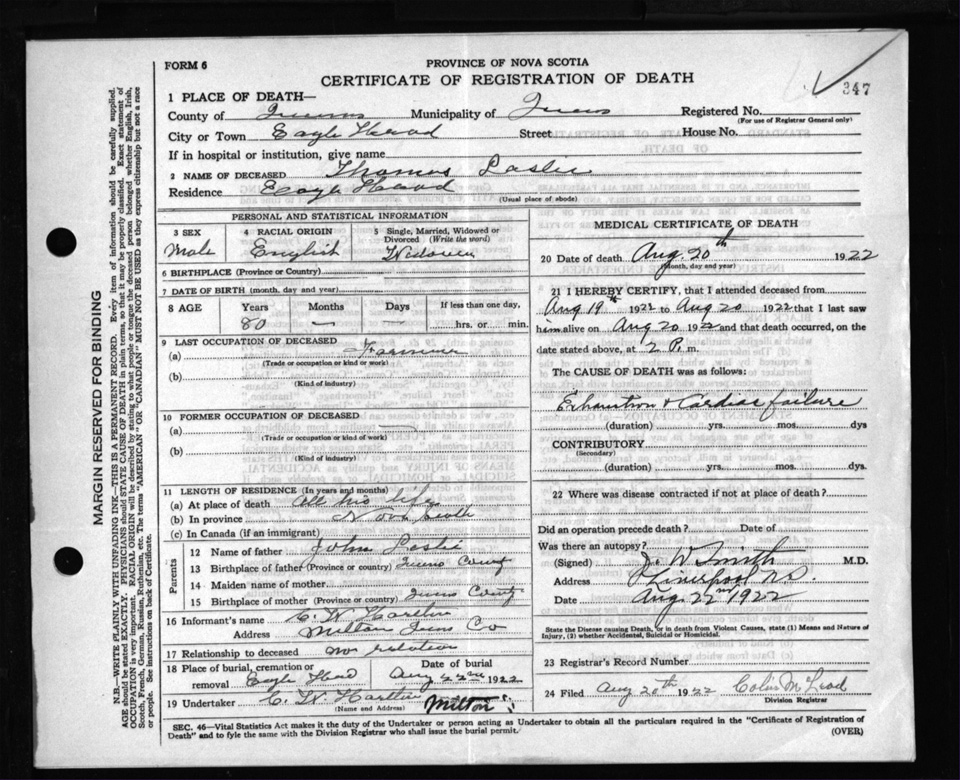 347
FORM 6
PROVINCE OF NOVA SCOTIA
CERTIFICATE OF REGISTRATION OF DEATH
1 PLACE OF DEATH—
County of Queens Municipality of Queens Registered No.
(For use of Registrar General only)
City or Town Eagle Head Street House No.
If in hospital or institution, give name
2 NAME OF DECEASED Thomas Leslie
Residence Eagle Head
(Usual place of abode)
PERSONAL AND STATISTICAL INFORMATION
3 SEX 4 RACIAL ORIGIN 5 Single, Married, Widowed or Divorced (Write the word)
Male English Widower
6 BIRTHPLACE (Province or Country)
7 DATE OF BIRTH (month, day and year)
8 AGE Years Months Days If less than one day,
80 — — hrs. or min.
9 LAST OCCUPATION OF DECEASED
(a)
(Trade or occupation or kind of work)
(b)
(Kind of industry)
10 FORMER OCCUPATION OF DECEASED
(a) —
(Trade or occupation or kind of work)
(b)
(Kind of industry)
11 LENGTH OF RESIDENCE (In years and months)
(a) At place of death All his life
(b) In province Nova Scotia
(c) In Canada (if an immigrant)
Parents
12 Name of father John Leslie
13 Birthplace of father (Province or country) Queens County
14 Maiden name of mother
15 Birthplace of mother (Province or country) Queens County
16 Informant's name C. W. Harthen
Address Milton Queens Co
17 Relationship to deceased no relation
18 Place of burial, cremation or removal Eagle Head
Date of burial Aug 22nd 1922
19 Undertaker C. W. Harthen Milton
(Name and Address)
MEDICAL CERTIFICATE OF DEATH
20 Date of death Aug. 20th 1922
(Month, day and year)
21 I HEREBY CERTIFY, that I attended deceased from
Aug 19th 1922 to Aug 20 1922 that I last saw
him alive on Aug 20 1922 and that death occurred, on the
date stated above, at 2 P. m.
The CAUSE OF DEATH was as follows:
Exhaustion & Cardiac failure
(duration) yrs. mos. dys
CONTRIBUTORY
(Secondary)
(duration) yrs. mos. dys
22 Where was disease contracted if not at place of death?
Did an operation precede death? Date of
Was there an autopsy?
(Signed) J. W Smith M.D.
Address Liverpool N.S.
Date Aug 22nd 1922
State the Disease causing Death, or in death from Violent Causes, state (1) Means and Nature of
Injury, (2) whether Accidental, Suicidal or Homicidal.
23 Registrar's Record Number
24 Filed Aug 20th 1922 Colin McLeod
Division Registrar
SEC. 46—Vital Statistics Act makes it the duty of the Undertaker or person acting as Undertaker to obtain all the particulars required in the "Certificate of Registration of
Death" and to fyle the same with the Division Registrar who shall issue the burial permit.
(OVER)
MARGIN RESERVED FOR BINDING
N.B.—WRITE PLAINLY WITH UNFADING INK—THIS IS A PERMANENT RECORD. Every item of information should be carefully supplied.
AGE should be stated EXACTLY. PHYSICIANS should STATE CAUSE OF DEATH in plain terms, so that it may be properly classified. Exact statement of
OCCUPATION is very important. RACIAL ORIGIN will be described by stating to what people or tongue the deceased person belonged whether English, Irish,
Scotch, French, German, Russian, Ruthenian, etc. The terms "AMERICAN" OR "CANADIAN" MUST NOT BE USED as they express citizenship but not a race
or people. See instructions on back of Certificate.